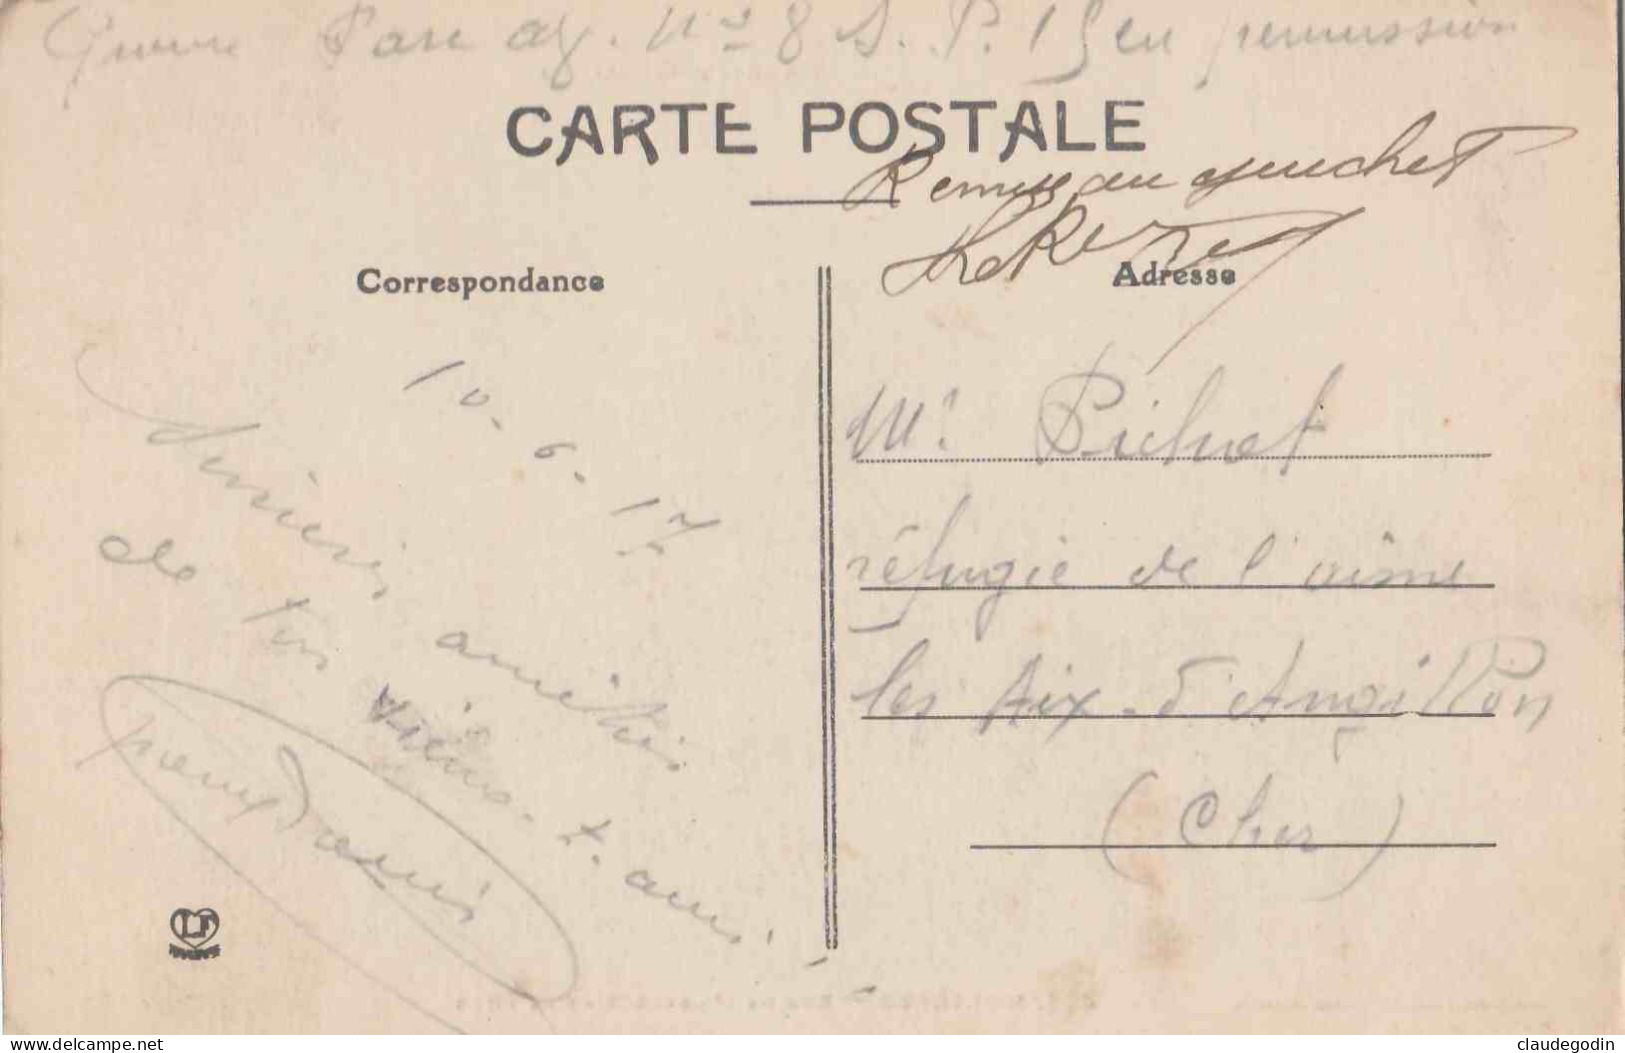 Parc N° 8 S. P. 19 en permission
CARTE POSTALE
Remise au guichet
Correspondance
Adresse
10-6-17
amitiés
de ton vieux ami
Mr Pichot
réfugié de l'aisne
les Aix-d'Angillon
(Cher)
LF
delcampe.net
claudegodin